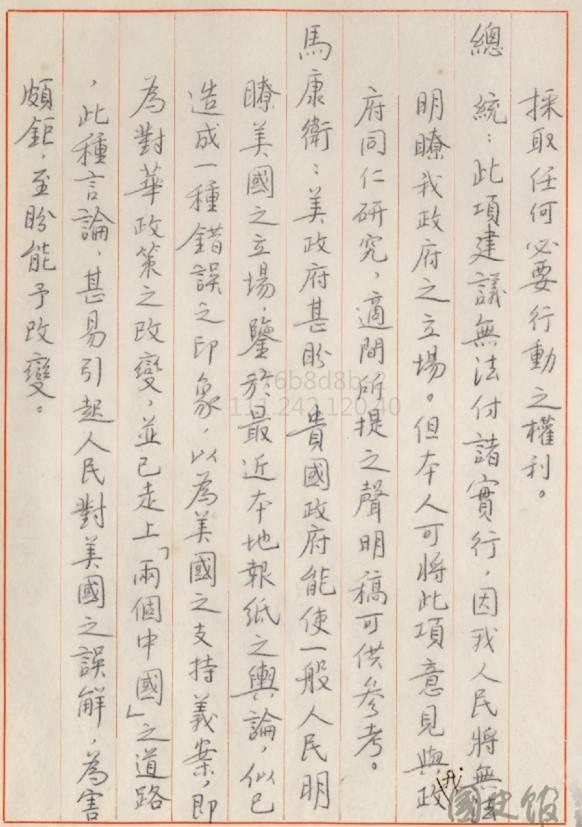 採取任何必要行動之權利。
總　統：此項建議無法付諸實行，因我人民將無法
明瞭我政府之立場。但本人可將此項意見與政
府同仁研究，適間所提之聲明稿可供參考。
馬康衛：美政府甚盼　貴國政府能使一般人民明
瞭美國之立場，鑒於最近本地報紙之輿論，似已
造成一種錯誤之印象，以為美國之支持義案，即
為對華政策之改變，並已走上「兩個中國」之道路
，此種言論，甚易引起人民對美國之誤解，為害
頗鉅，至盼能予改變。
111.242.120.40
國史館